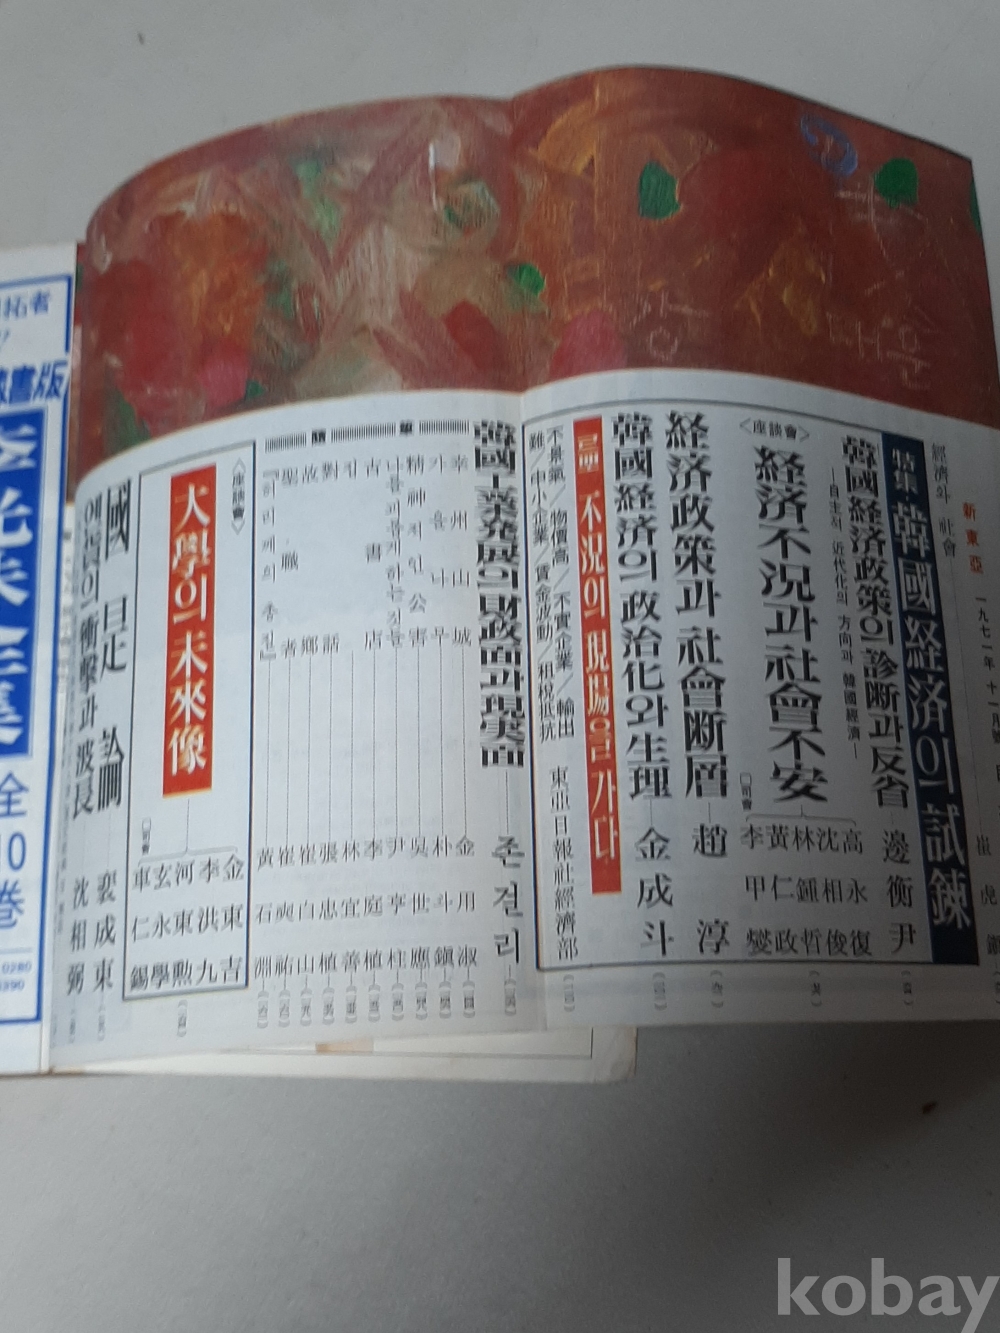 新東亞
経済와 社会
特集 韓國経済의 試鍊
韓國経済政策의 診断과 反省 邊衡尹
—自主的 近代化의 方向과 韓國經濟—
<座談會>
経済不況과 社會不安
高永復
沈相俊
林鍾哲
黃仁政
李甲燮
司會
経済政策과 社會断層 趙淳
韓國経済의 政治化와 生理 金成斗
르뽀 不況의 現場을 가다
不景氣／物價高／不實企業／輸出
難／中小企業／賃金波動／租稅抵抗 東亞日報社經濟部
韓國工業発展의 財政面과 現実面 존 결리
隨筆
幸州山城 金用淑
가을 나무 朴斗鎭
精神저인 公害 吳世應
나를 괴롭게 하는 것들 尹亨柱
古書店 李庭植
林宜善
對話 張忠植
故鄕 崔白山
聖職者 崔奭祐
黃石淵
<座談會>
大學의 未來像
金東吉
李洪九
河東勲
玄永學
車仁錫
司會
國是論 裵成東
衝擊과 波長 沈相弼
拓者
書版
全10巻
0280
390
하
상
태순
kobay